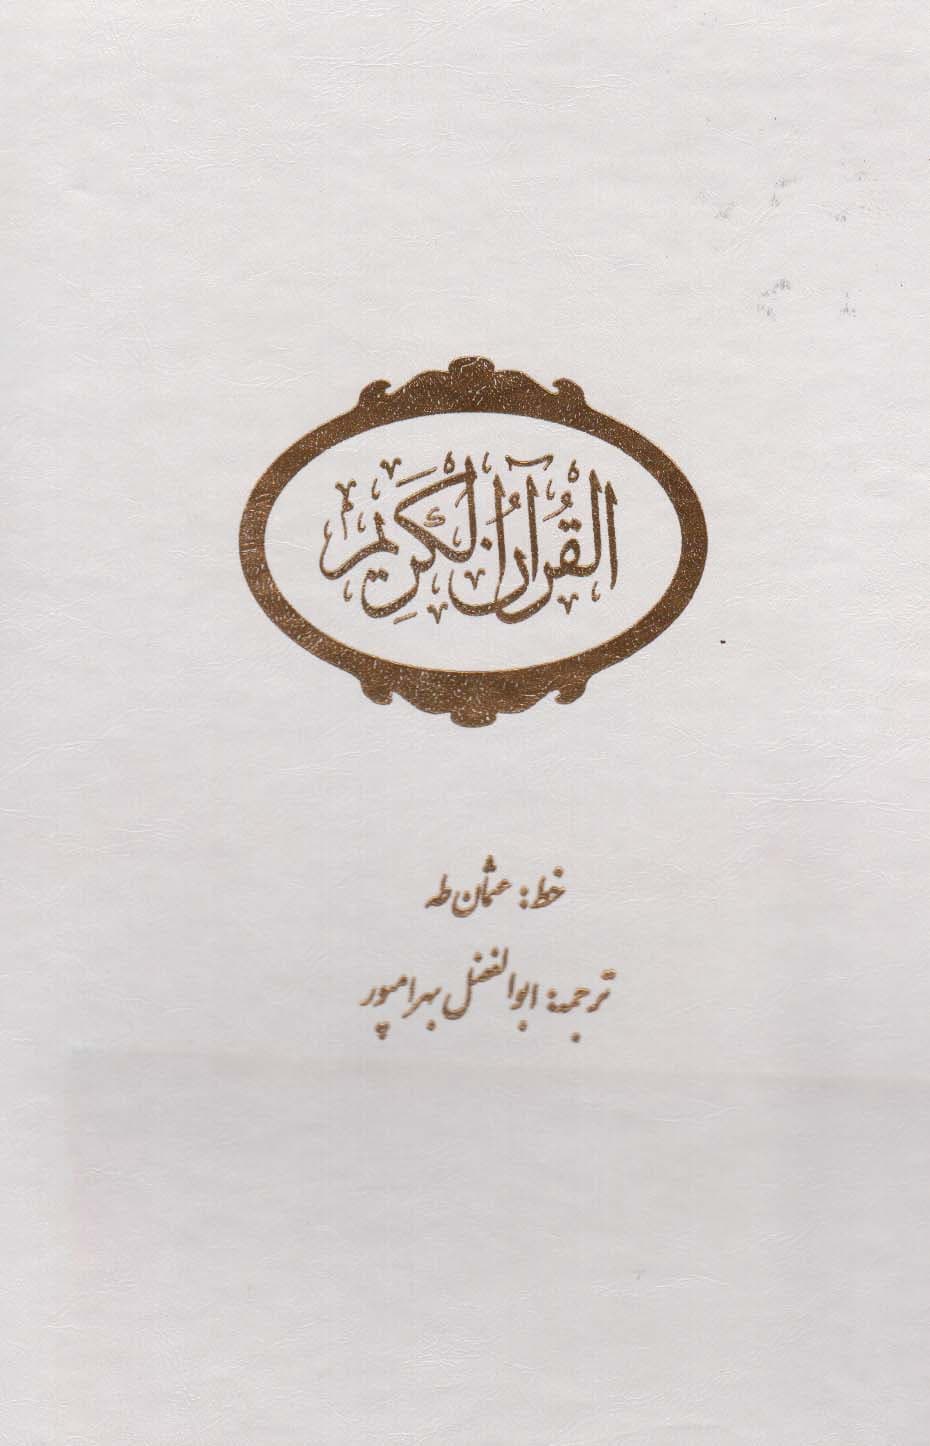 القرآن الكريم
خط: عثمان طه
ترجمة: ابوالفضل بهرامپور